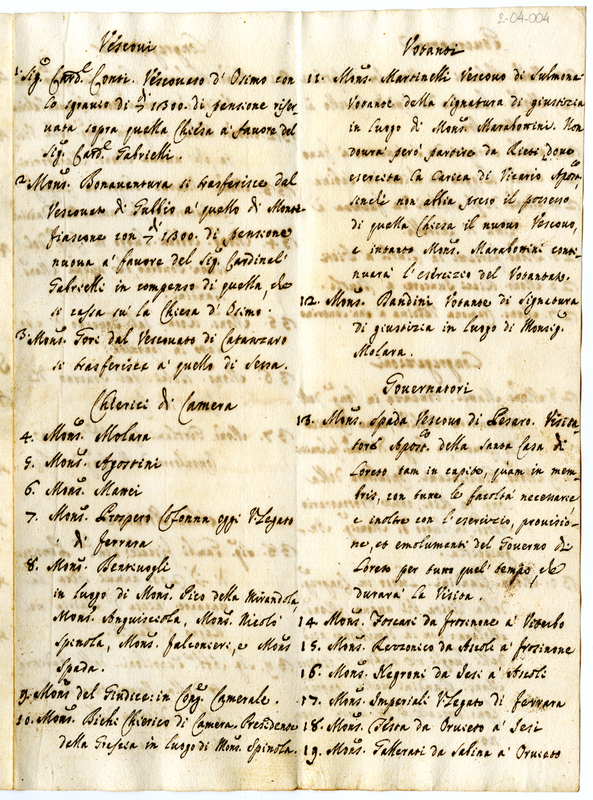 2-04-004
Vescovi
1. Sig.r Card.le Conti. Vescovato d'Osimo con
lo sgravio di 1300. di pensione riser-
vata sopra quella Chiesa à favore del
Sig.r Card.l Gabrielli.
2. Mons.r Bonaventura si trasferisce dal
Vescovato di Gubbio à quello di Monte-
fiascone con 1300. di pensione
nuova à favore del Sig.r Cardinal
Gabrielli in compenso di quella, che
si cassa sù la Chiesa d'Osimo.
3. Mons.r Gori dal Vescovato di Catanzaro
si trasferisce à quello di Sessa.
Chierici di Camera
4. Mons.r Molara
5. Mons.r Agostini
6. Mons.r Massei
7. Mons.r Prospero Colonna oggi V.Legato
di Ferrara
8. Mons.r Bentivogli
in luogo di Mons.r Pico della Mirandola
Mons.r Anguisciola, Mons.r Nicolò
Spinola, Mons.r Falconieri, e Mons.r
Spada.
9. Mons.r del Giudice: in Cong. Camerale.
10. Mons.r Bichi Chierico di Camera, Presidente
della Grascia in luogo di Mons.r Spinola.
Votanti
11. Mons.r Martinelli Vescovo di Sulmona
Votante della Signatura di giustizia
in luogo di Mons.r Marabottini. Non
dovrà però partire da Rieti dove
esercita la carica di Vicario Apost.co
sinchè non abbia preso il possesso
di quella Chiesa il nuovo Vescovo,
e intanto Mons.r Marabottini conti-
nuarà l'esercizio del Votantato.
12. Mons.r Bandini Votante di Signatura
di giustizia in luogo di Monsig.r
Molara.
Governatori
13. Mons.r Spada Vescovo di Pesaro. Visita-
tore Apost.co della Santa Casa di
Loreto tam in capite, quam in mem-
bris, con tutte le facoltà necessarie
e inoltre con l'esercizio, provisio-
ne, et emolumenti del Governo di
Loreto per tutto quel tempo, che
durarà la Visita.
14. Mons.r Foscari da Frosinone à Viterbo
15. Mons.r Rezzonico da Ascoli à Frosinone
16. Mons.r Negroni da Jesi à Ascoli
17. Mons.r Imperiali V.Legato di Ferrara
18. Mons.r da Orvieto à Jesi
19. Mons.r Gallerati da Sabina à Orvieto